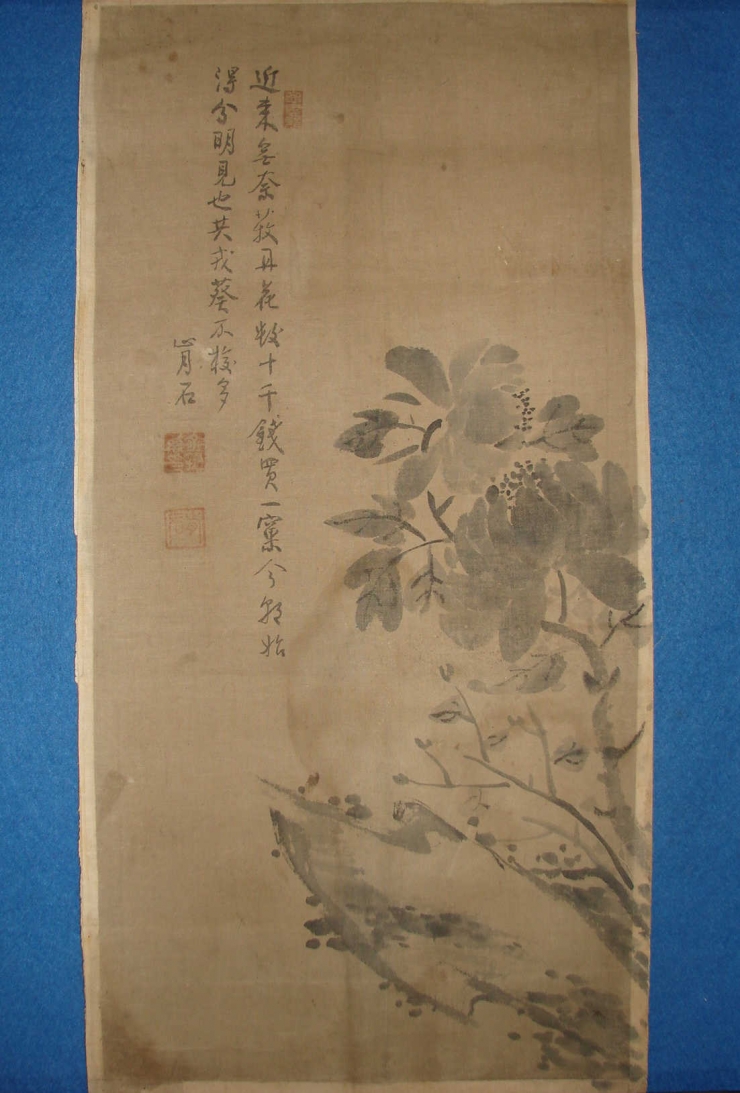 近来無奈牡丹花數十千錢買一窠今朝始
得分明見也共戎葵不挍多
肯石